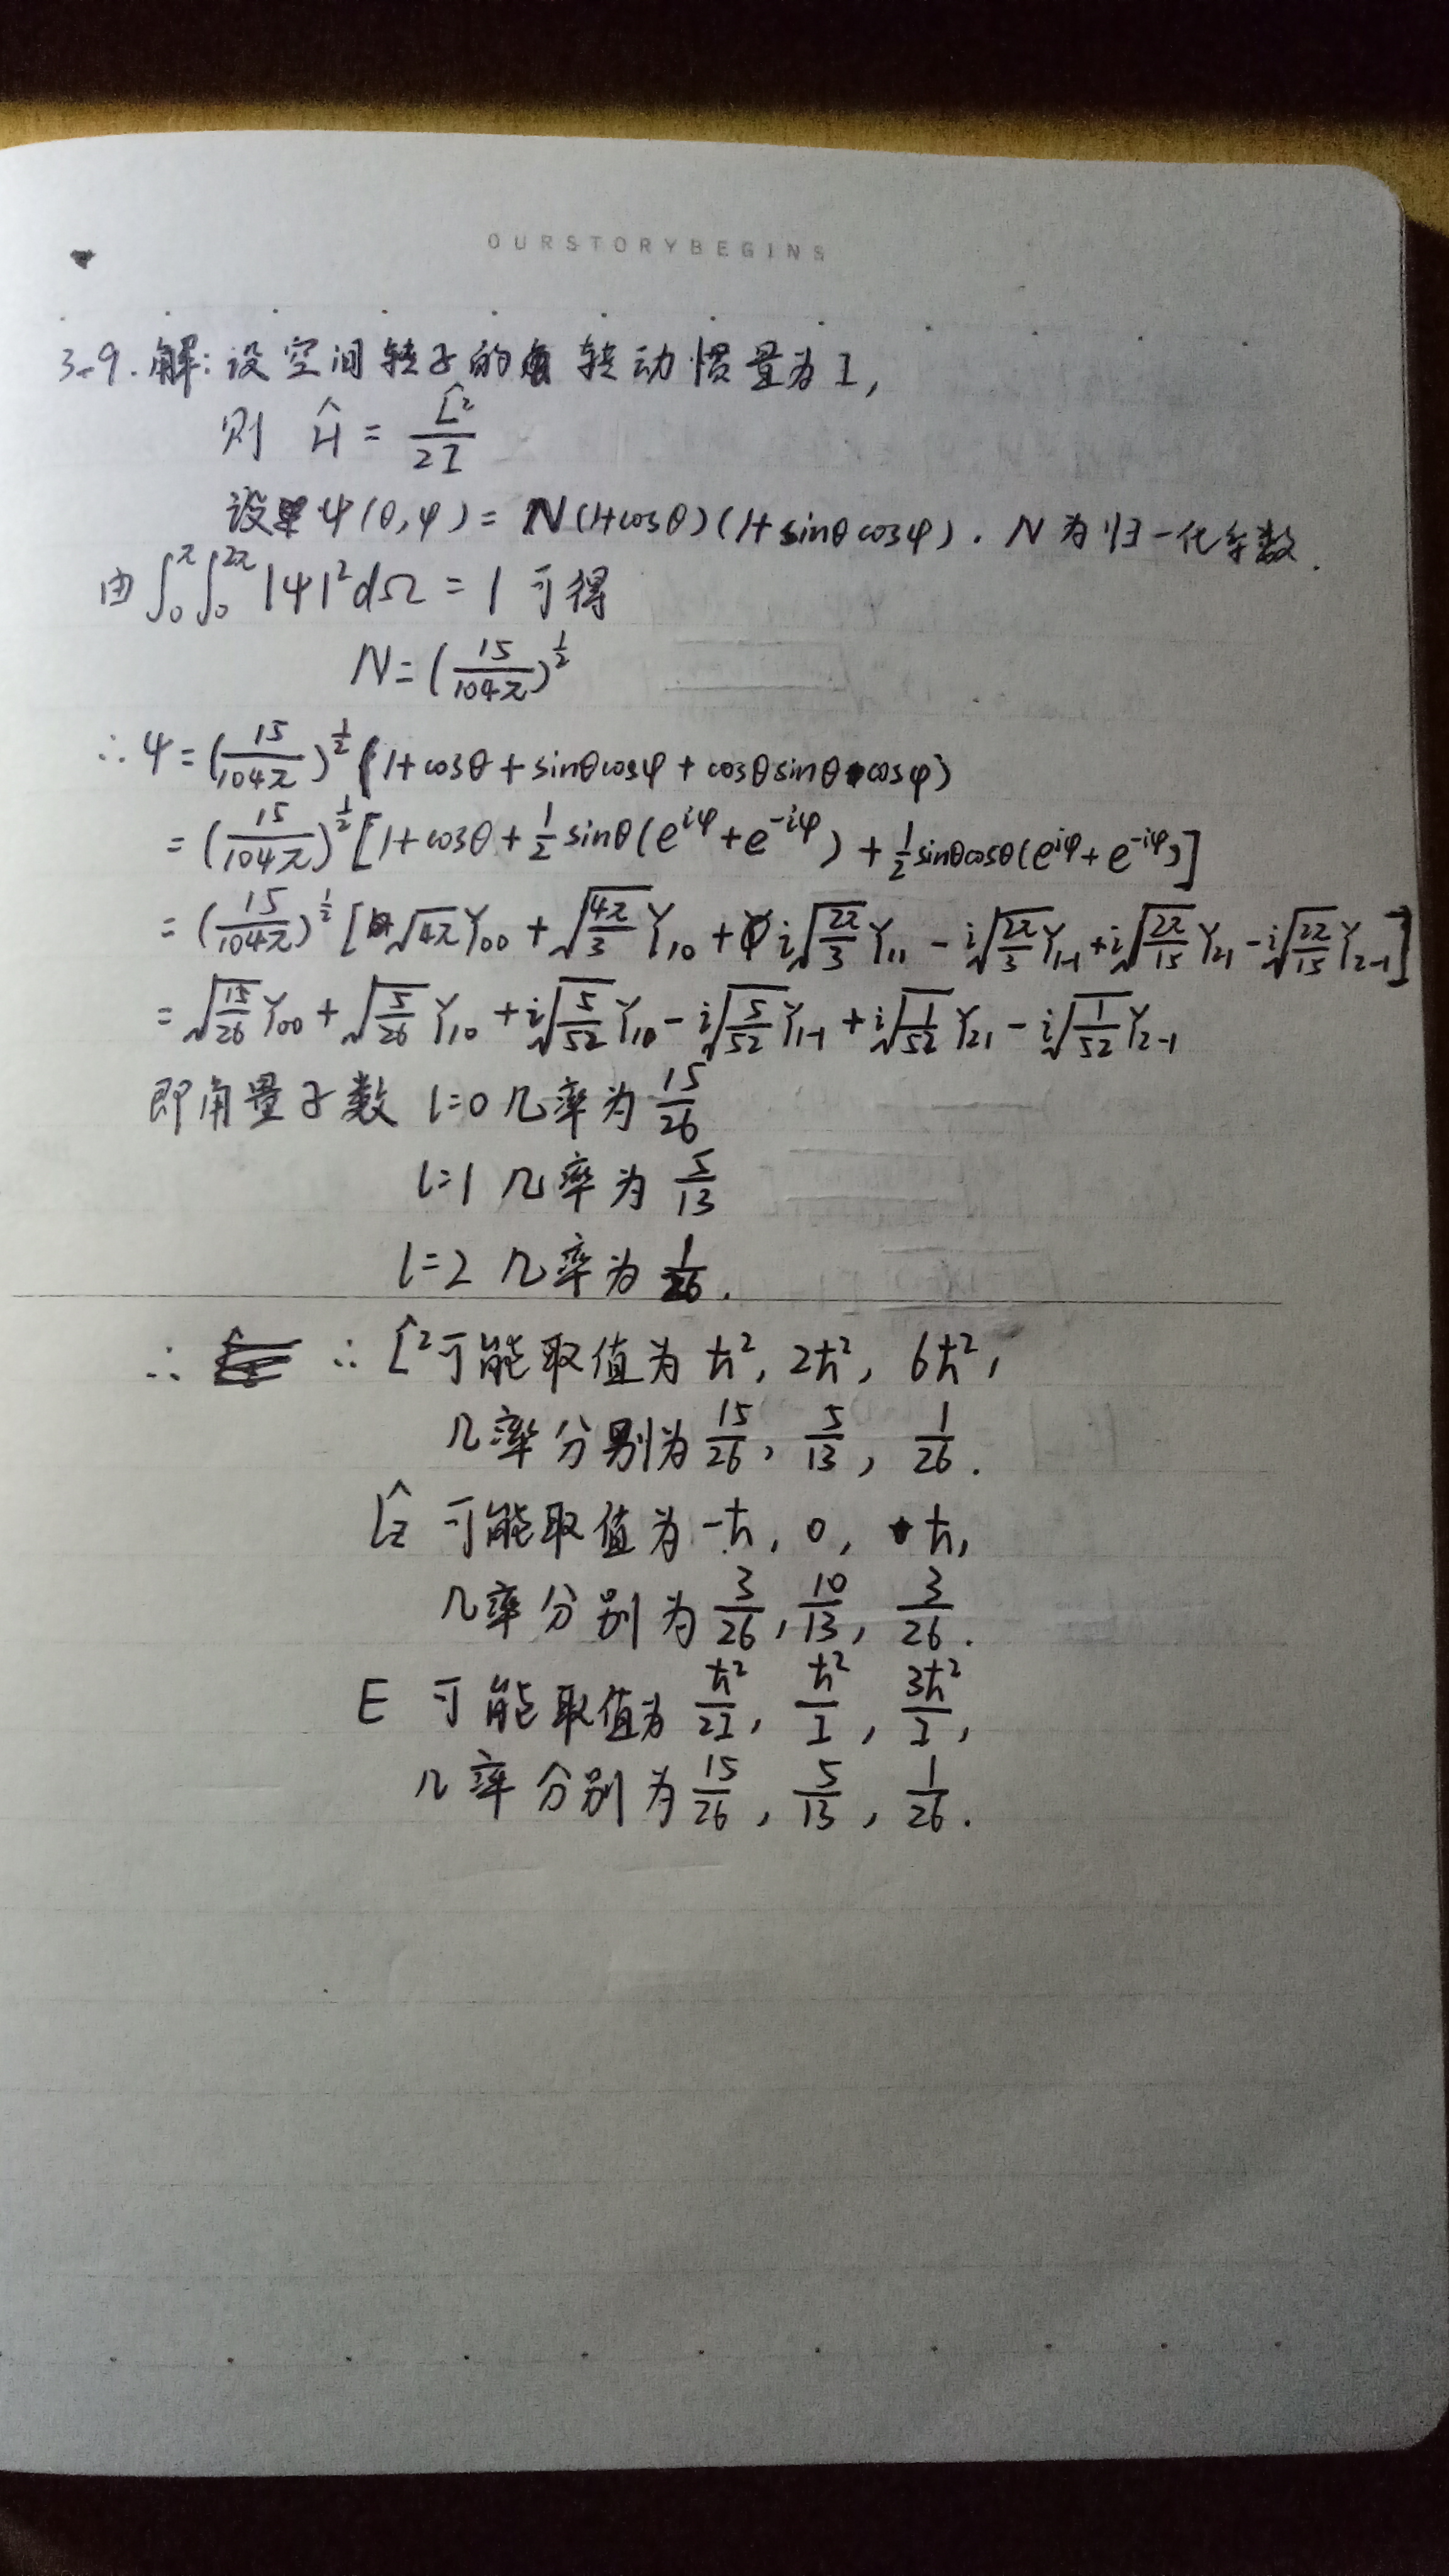 OURSTORYBEGINS
3.9. 解: 设空间转子的转动惯量为 I,
则 Ĥ = L̂²/2I
设 ψ(θ,φ) = N(1+cosθ)(1+sinθcosφ). N为归一化系数.
由 ∫₀^π∫₀^2π |ψ|²dΩ = 1 可得
N = (15/104π)^½
∴ ψ = (15/104π)^½ (1+cosθ+sinθcosφ+cosθsinθcosφ)
= (15/104π)^½ [1+cosθ+½sinθ(e^iφ+e^-iφ)+½sinθcosθ(e^iφ+e^-iφ)]
= (15/104π)^½ [√4π Y₀₀ + √(4π/3) Y₁₀ + i√(2π/3) Y₁₁ - i√(2π/3) Y₁₋₁ + i√(2π/15) Y₂₁ - i√(2π/15) Y₂₋₁]
= √(15/26) Y₀₀ + √(5/26) Y₁₀ + i√(5/52) Y₁₀ - i√(5/52) Y₁₋₁ + i√(1/52) Y₂₁ - i√(1/52) Y₂₋₁
即角量子数 l=0 几率为 15/26
l=1 几率为 5/13
l=2 几率为 1/26.
∴ ∴ L̂²可能取值为 ħ², 2ħ², 6ħ²,
几率分别为 15/26, 5/13, 1/26.
L̂z 可能取值为 -ħ, 0, ħ,
几率分别为 3/26, 10/13, 3/26.
E 可能取值为 ħ²/2I, ħ²/I, 3ħ²/I,
几率分别为 15/26, 5/13, 1/26.